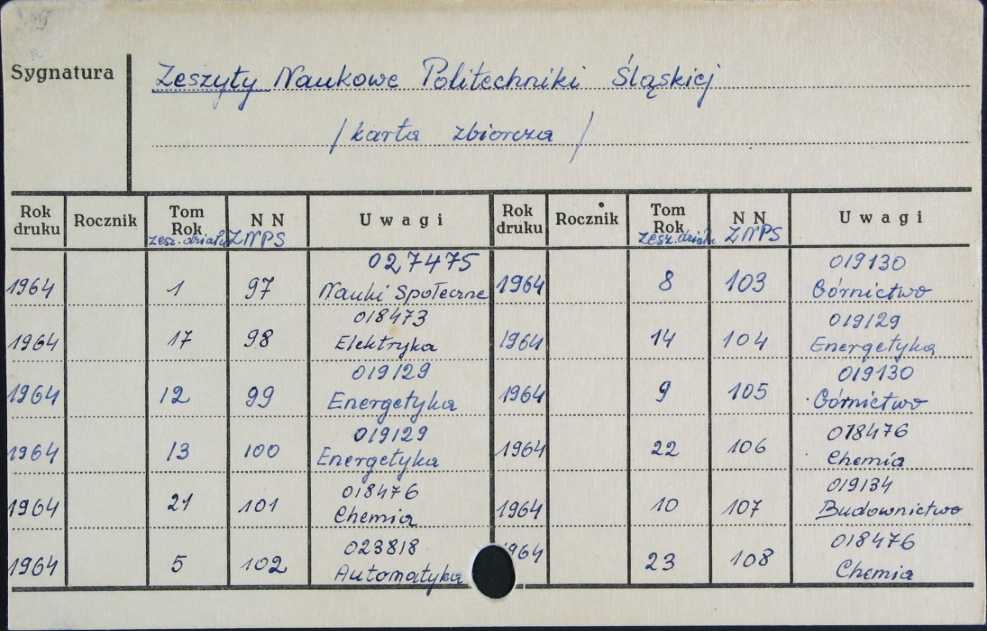 Sygnatura
Zeszyty Naukowe Politechniki Śląskiej
/karta zbiorcza/
Rok druku Rocznik Tom Rok zesz. działu N N ZNPS Uwagi Rok druku Rocznik Tom Rok zesz. działu N N ZNPS Uwagi
1964 1 97 027475 Nauki Społeczne 1964 8 103 019130 Górnictwo
1964 17 98 018473 Elektryka 1964 14 104 019129 Energetyka
1964 12 99 019129 Energetyka 1964 9 105 019130 Górnictwo
1964 13 100 019129 Energetyka 1964 22 106 018476 Chemia
1964 21 101 018476 Chemia 1964 10 107 019134 Budownictwo
1964 5 102 023818 Automatyka 1964 23 108 018476 Chemia